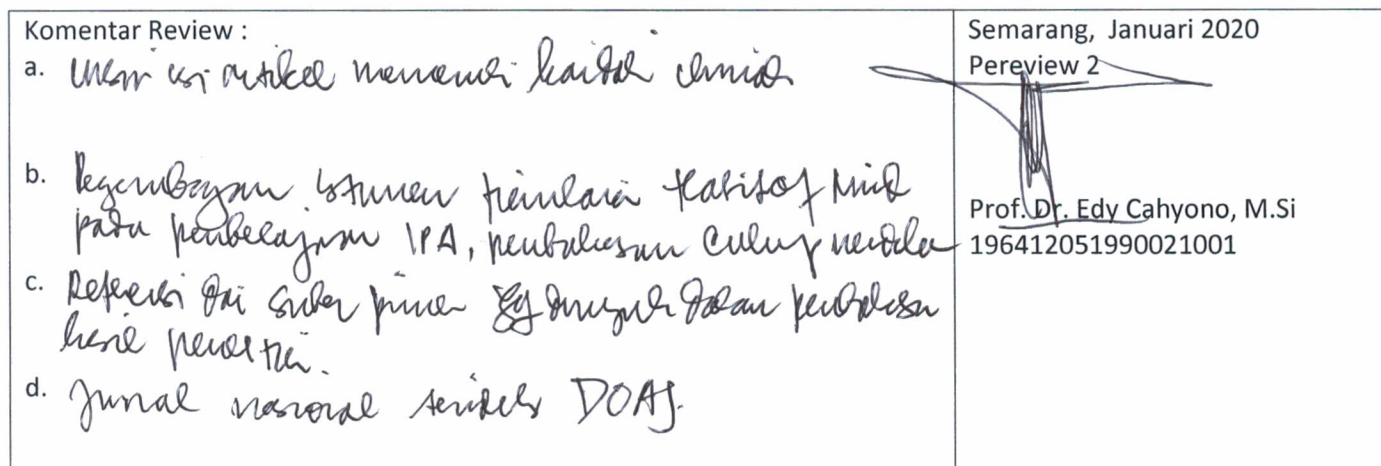 Komentar Review :
a. Unsur isi artikel memenuhi kaidah ilmiah
b. Pegembangan istrumen penilaian Habits of Mind
pada pembelajaran IPA, pembahasan cukup
c. Referensi dari sumber primer yg dirujuk dalam pembahasan
hasil penelitian.
d. Jurnal nasional terindeks DOAJ.
Semarang, Januari 2020
Pereview 2
Prof. Dr. Edy Cahyono, M.Si
196412051990021001